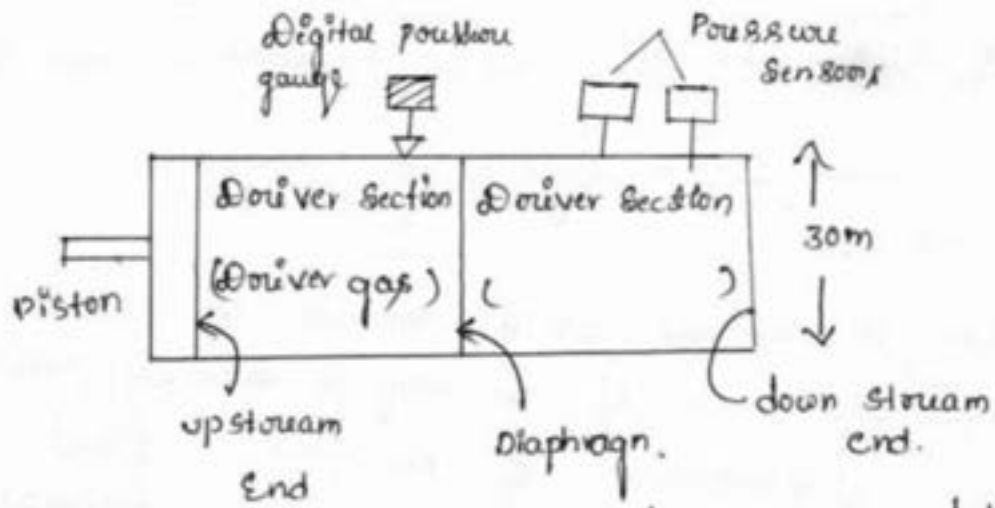 Digital poussou
gauge
Poussure
Sensors
Douiver Section
Douiver Section
(Douiver gas)
(      )
30m
Piston
upstouam
End
Diaphragn.
down stouam
end.